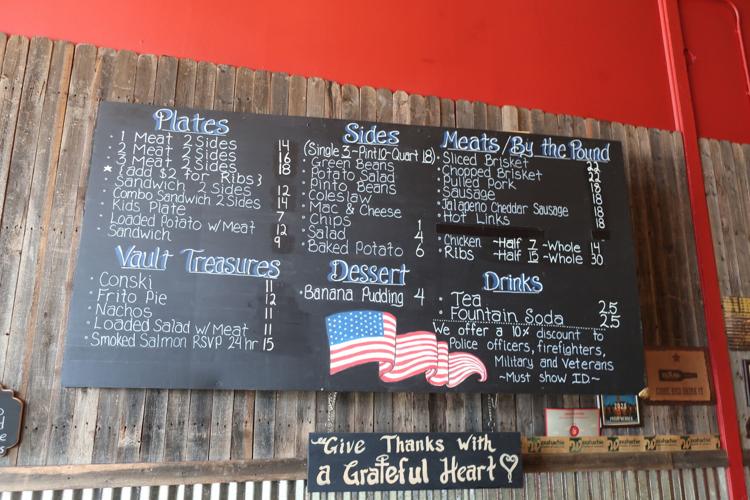 Plates
· 1 Meat 2 Sides 14
· 2 Meat 2 Sides 16
· 3 Meat 2 Sides 18
* {add $2 for Ribs}
· Sandwich 2 Sides 12
· Combo Sandwich 2 Sides 14
· Kids Plate 7
· Loaded Potato w/ Meat 12
· Sandwich 9
Vault Treasures
· Conski 11
· Frito Pie 12
· Nachos 11
· Loaded Salad w/ Meat 11
· Smoked Salmon RSVP 24 hr 15
Sides
(Single 3 - Pint 10 - Quart 18)
· Green Beans
· Potato Salad
· Pinto Beans
· Coleslaw
· Mac & Cheese
· Chips 1
· Salad 4
· Baked Potato 6
Dessert
· Banana Pudding 4
Meats / By the Pound
· Sliced Brisket 22
· Chopped Brisket 22
· Pulled Pork 18
· Sausage 18
· Jalapeño Cheddar Sausage 18
· Hot Links 18
· Chicken - Half 7 - Whole 14
· Ribs - Half 15 - Whole 30
Drinks
· Tea 2.5
· Fountain Soda 2.5
We offer a 10% discount to
Police officers, firefighters,
Military and Veterans
~Must show ID~
"Give Thanks with
a Grateful Heart
COME AND DRINK IT